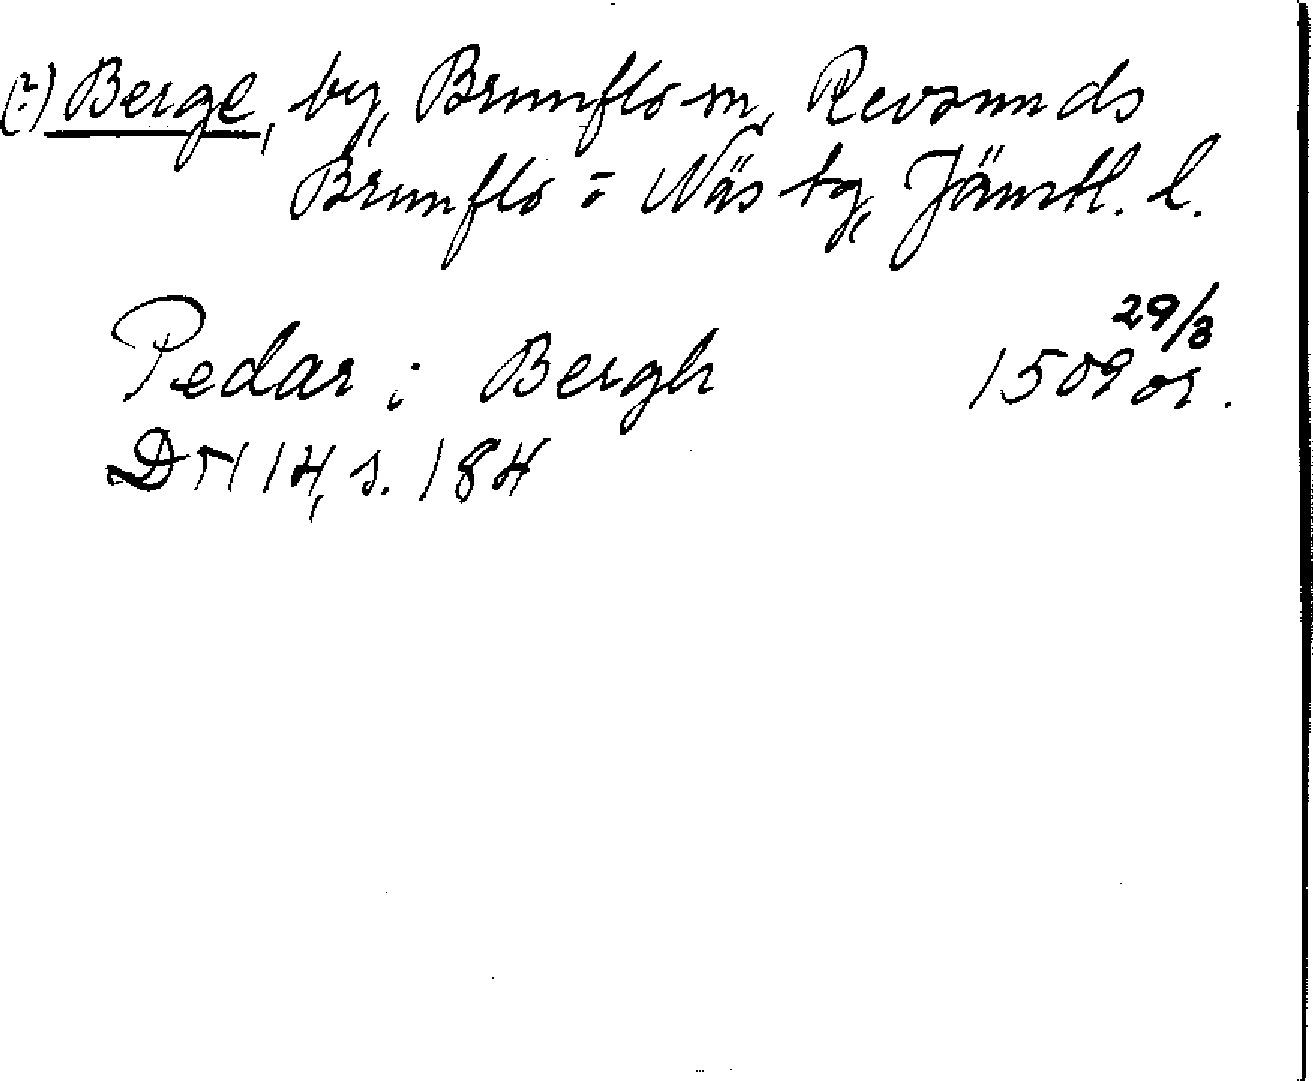 (?) Berge, by, Brunflo sn, Revsunds
Brunflo = Näs tg, Jämtl. l.
29/3
Pedar i Bergh 1509 or.
DN 14, s. 184